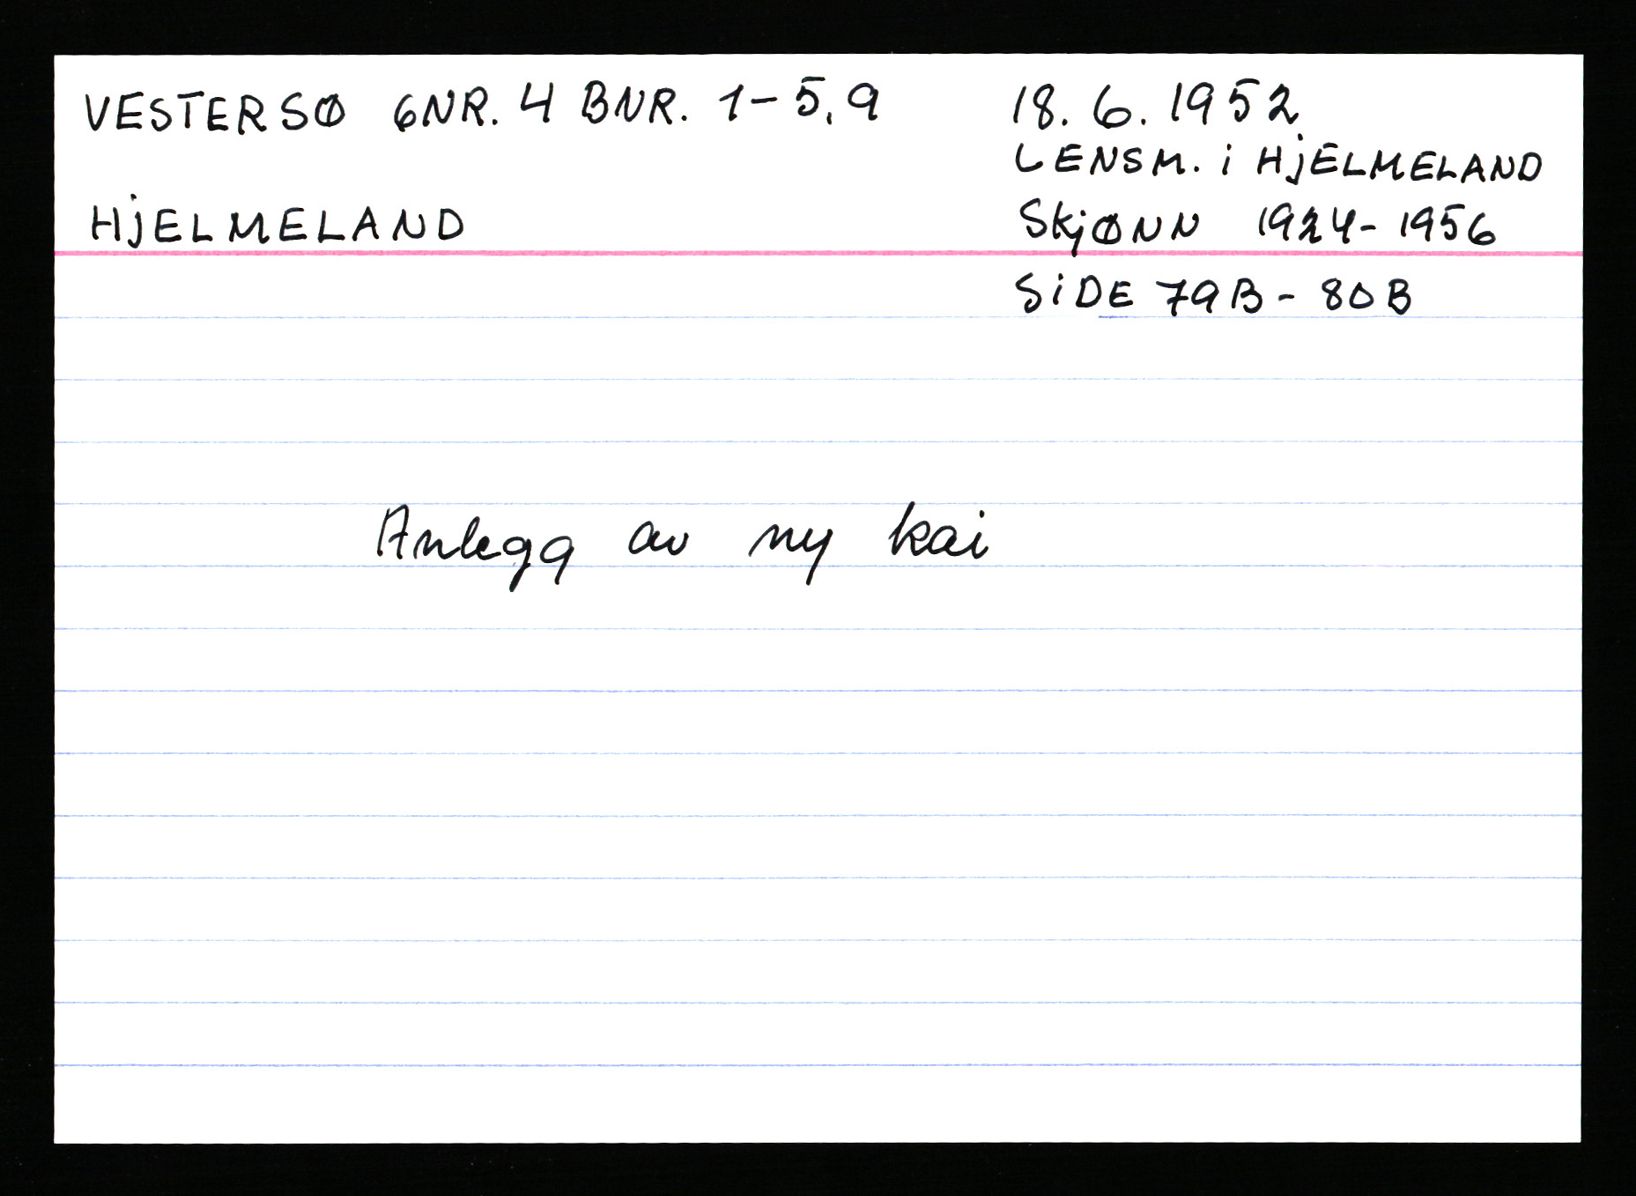 VESTERSØ GNR. 4 BNR. 1-5, 9
HJELMELAND
18. 6. 1952
LENSM. i HJELMELAND
SKJØNN 1924-1956
SIDE 79B - 80B
Anlegg av ny kai